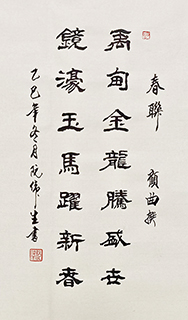 春聯 撰
禹甸金龍騰盛世
鏡濠玉馬躍新春
乙巳年冬月阮偉生書